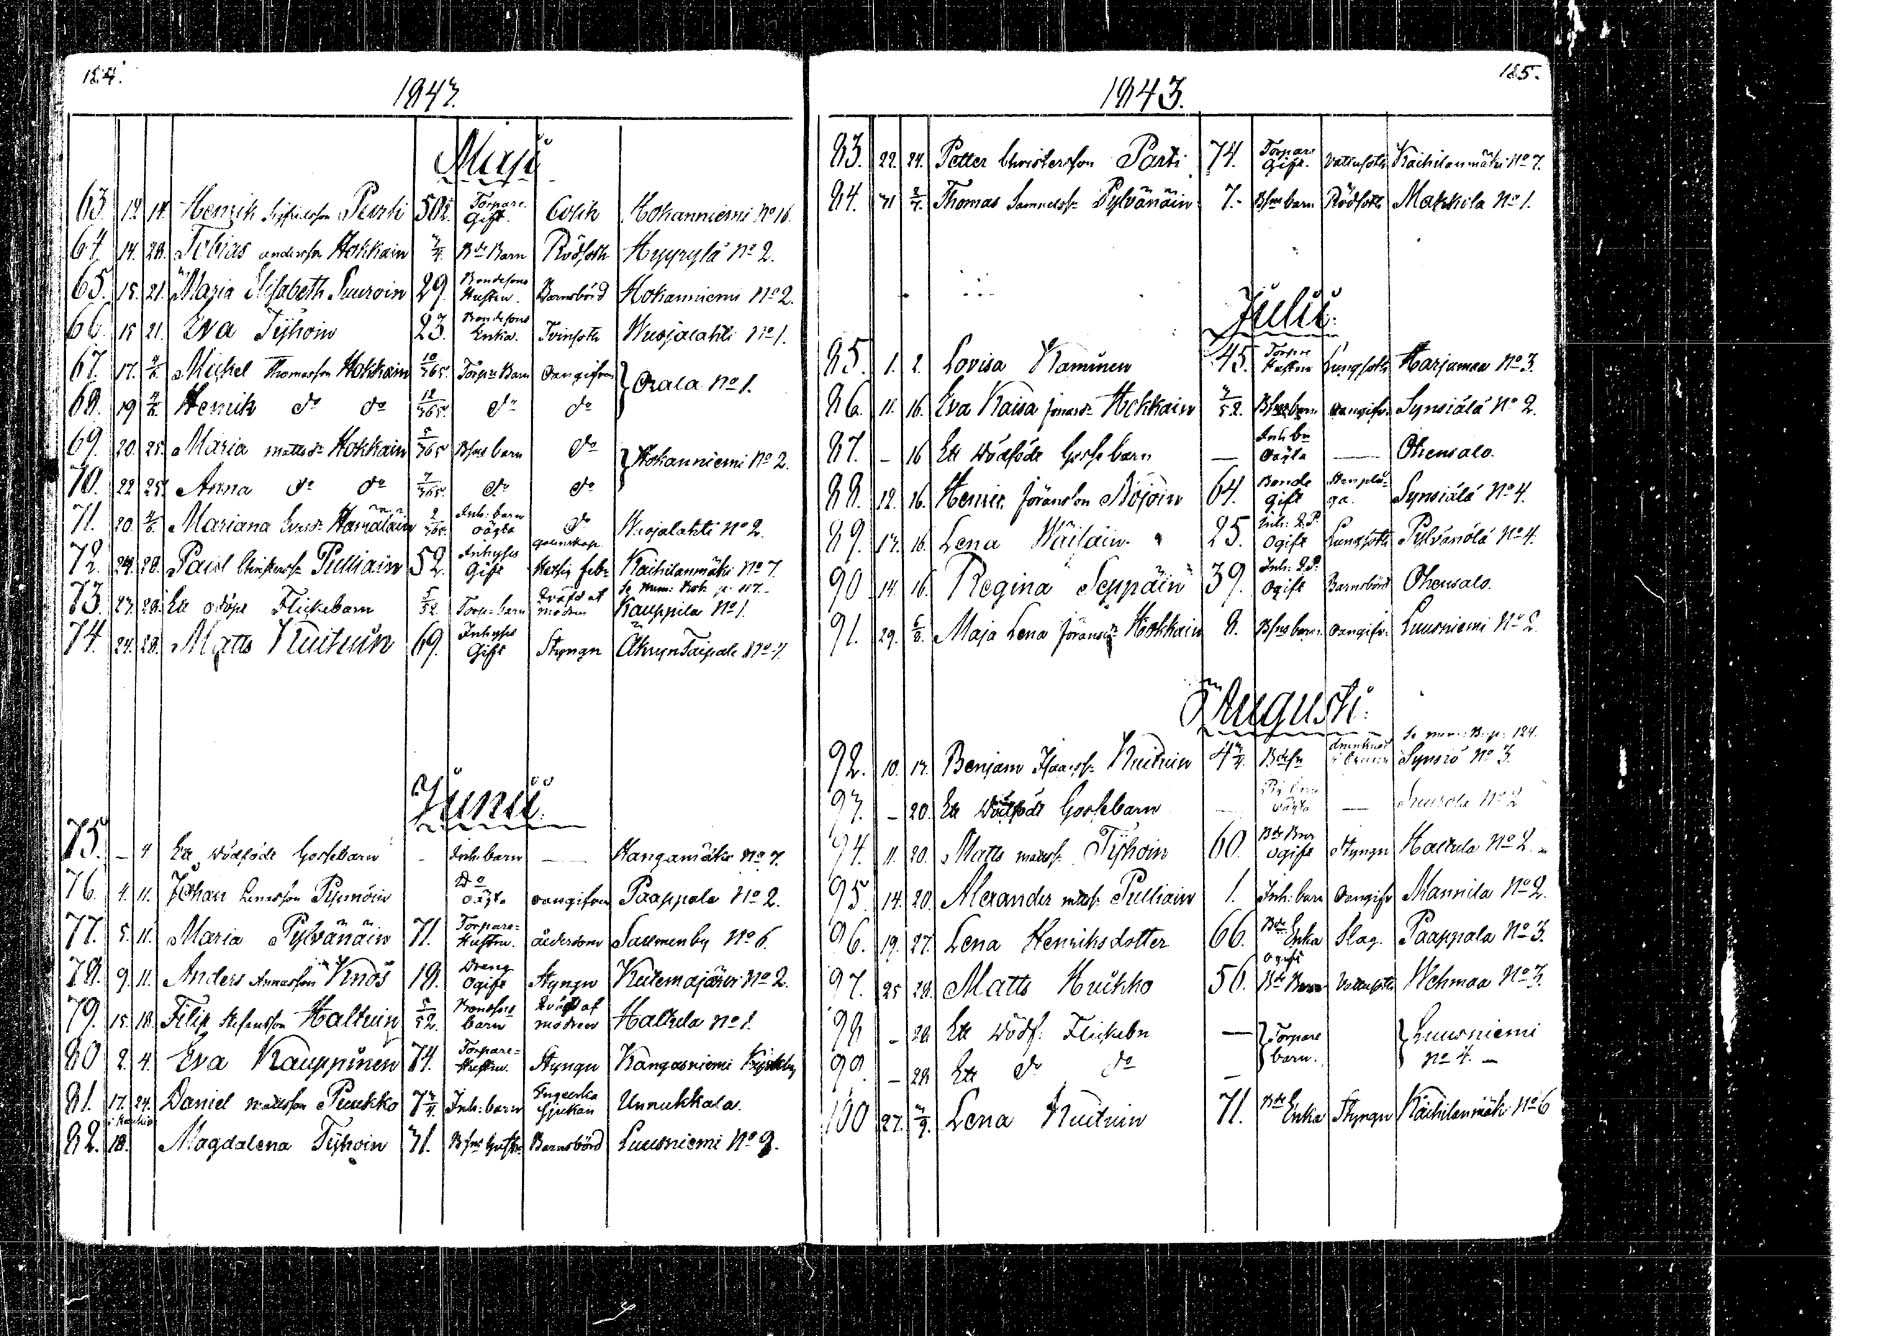 184.
1843.
Maji
63. 12. 14. Henrik Sigfridsson Purti 50½. Torpare. Gift. Colik Hokanniemi No 16.
64. 14. 28. Tobias andersson Hokkain Bde Barn Rödsoth Hyyrylä No 2.
65. 15. 21. Maria Elisabeth Suuroin 29. Bondesons Hustru. Barnsbörd Hokanniemi No 2.
66. 15 21. Eva Tyhoin 23. Bondesons Enka. Tvinsoth Wuojalahti No 1.
67. 17. Michel Thomasson Hokkain 10/365. Torpre Barn Oangifven Orala No 1.
68. 19 Henrik do do 12/365. do do
69. 20. 25. Maria mattsdr Hokkain 5/365 Bsns barn do Hokanniemi No 2.
70. 22 25. Anna do do 7/365. do do
71. 20. Mariana Hämäläin 2/365. Inh. barn oägta do Wuojalahti No 2.
72. 24. 28. Paul Pulliain 52. Inhyses Gift Hetsig feber Kaihilanmäki No 7.
73. 23. 28. Ett odöpt Flickebarn 5/52 Torp. barn Qväfd af modren Kauppila No 1.
74. 24. 28. Matts Kuituin 69. Inhyses Gift Styngn Äkryn Taipale No 7.
Junii.
75. – 4 Ett dödföde Gossebarn - Inh. barn — Kangamäki No 7.
76. 4. 11. Johan Lenasson Pynnöin Do oägta oangifven Paappala No 2.
77. 5. 11. Maria Pylvänäin 71. Torpare-Hustru. ålderdom Salmenby No 6.
78. 9. 11. Anders Annasson Knos 18. Dreng Ogift Styngn Kutemajärvi No 2.
79. 15. 18. Filip Stefansson Haltuin 5/52. Bondsons barn Qväfd af modren Halkela No 1.
80 2. 4. Eva Kauppinen 74. Torpare-Hustru. Styngn Kangasniemi Kyrkby
81. 17. 24. Daniel mattsson Puukko 7 Inh: barn Engelska sjukan Unnukkala.
82. 18. Magdalena Tyhoin 71. Bsns hustru Barnsbörd Luusniemi No 9.
185.
1843.
83. 22. 24. Petter Christersson Parti 74. Torpare Gift. Vattusoth Kaihilanmäki No 7.
84. 21 Thomas Samuelss. Pylvänäin 7. Bsns barn Rödsoth Makkila No 1.
Julii.
85. 1. 2. Lovisa Kaminen 45. Torpre Hustru Lungsoth Harjumaa No 3.
86. 11. 16. Eva Kaisa Jöransdr Hokkain 7/52. Bsns barn oangifv: Synsiälä No 2.
87. – 16 Ett dödföde Gossebarn — Inh. bn oägta — Ohensalo.
88. 12. 16. Henric Jöransson Böjöin 64. Bonde Gift Stenplåga. Synsiälä No 4.
89. 13. 16. Lena Wäisäin 25. Inh: Ogift Lungsoth Pylvänälä No 4.
90 14. 16. Regina Seppäin 39. Inh: Ogift Barnsbörd Ohensalo.
91. 29. Maja Lena Jöransdr Hokkain 8. Bsns barn. oangifv: Luusniemi No 2.
Augusti.
Se mem: B. p: 124.
92. 10. 13. Benjam Isaacss. Kuituin Bdesn Synsiö No 3.
93. – 20. Ett dödföde Gossebarn oägta — No 2
94. 11. 20. Matts matss. Tyhoin 60. Bde Bror ogift Styngn Halkela No 2.
95. 14. 20. Alexander mtss. Pulliain 1. Inh: barn Oangifv Mannila No 2.
96. 19. 27. Lena Henriksdotter 66. Bde Enka Slag. Paappala No 3.
97. 25 28. Matts Huckko 50. ogift Bde Bror Vattusoth Wehmaa No 3.
98 – 28 Ett Dödf: Flickebn — Torpare barn. Luusniemi No 4. –
99. – 28 Ett do do
100 27. Lena Kuituin 71. Bde Enka Styngn Kaihilanmäki No 6